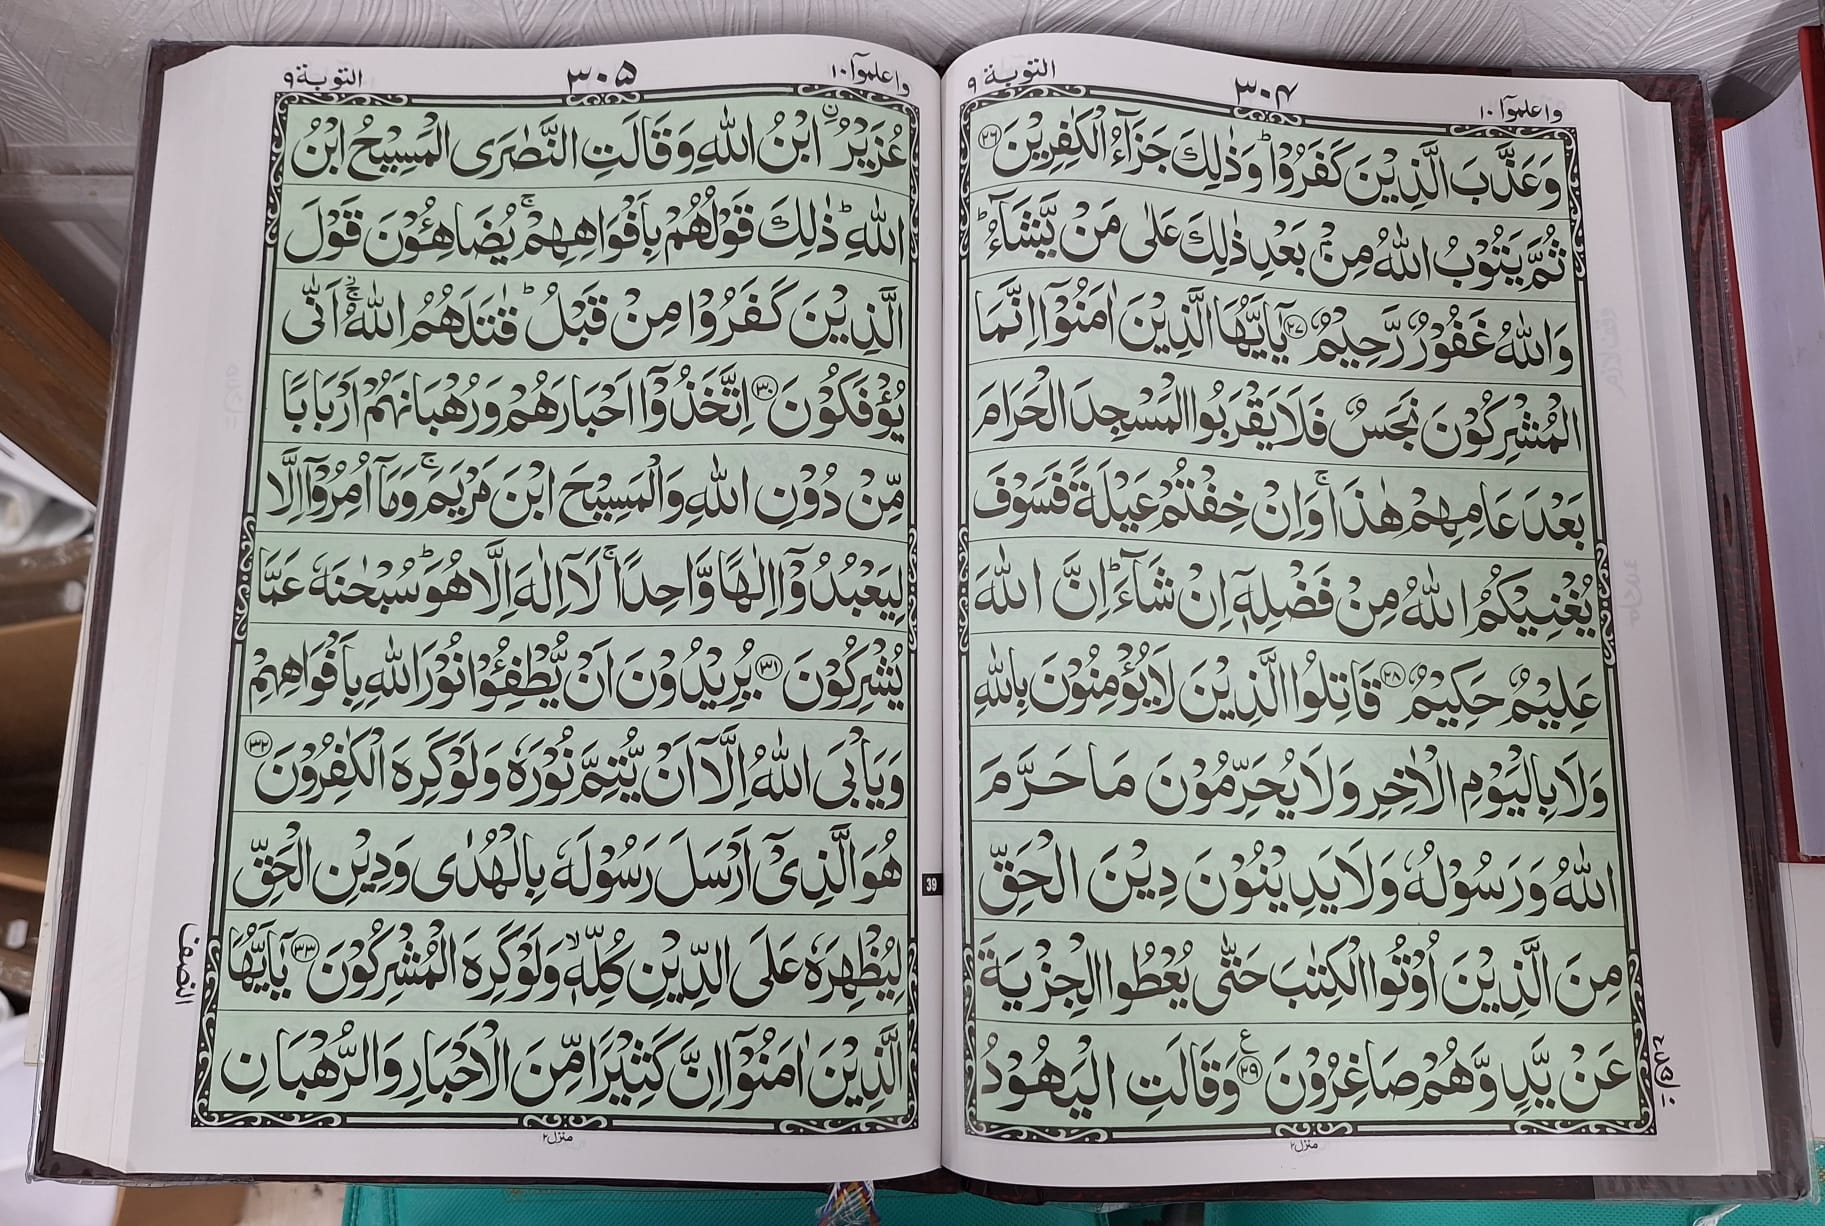 واعلموٓا ١٠
٣٠٤
التوبة ٩
وَعَذَّبَ الَّذِيْنَ كَفَرُوْا ؕ وَذٰلِكَ جَزَآءُ الْكٰفِرِيْنَ ﴿٢٦﴾
ثُمَّ يَتُوْبُ اللّٰهُ مِنْۢ بَعْدِ ذٰلِكَ عَلٰى مَنْ يَّشَآءُ ؕ
وَاللّٰهُ غَفُوْرٌ رَّحِيْمٌ ﴿٢٧﴾ يٰۤاَيُّهَا الَّذِيْنَ اٰمَنُوْۤا اِنَّمَا
الْمُشْرِكُوْنَ نَجَسٌ فَلَا يَقْرَبُوا الْمَسْجِدَ الْحَرَامَ
بَعْدَ عَامِهِمْ هٰذَا ۚ وَاِنْ خِفْتُمْ عَيْلَةً فَسَوْفَ
يُغْنِيْكُمُ اللّٰهُ مِنْ فَضْلِهٖۤ اِنْ شَآءَ ؕ اِنَّ اللّٰهَ
عَلِيْمٌ حَكِيْمٌ ﴿٢٨﴾ قَاتِلُوا الَّذِيْنَ لَا يُؤْمِنُوْنَ بِاللّٰهِ
وَلَا بِالْيَوْمِ الْاٰخِرِ وَلَا يُحَرِّمُوْنَ مَا حَرَّمَ
اللّٰهُ وَرَسُوْلُهٗ وَلَا يَدِيْنُوْنَ دِيْنَ الْحَقِّ
مِنَ الَّذِيْنَ اُوْتُوا الْكِتٰبَ حَتّٰى يُعْطُوا الْجِزْيَةَ
عَنْ يَّدٍ وَّهُمْ صَاغِرُوْنَ ﴿٢٩﴾ ع وَقَالَتِ الْيَهُوْدُ
منزل ٢
واعلموٓا ١٠
٣٠٥
التوبة ٩
عُزَيْرُ ۨابْنُ اللّٰهِ وَقَالَتِ النَّصٰرَى الْمَسِيْحُ ابْنُ
اللّٰهِ ؕ ذٰلِكَ قَوْلُهُمْ بِاَفْوَاهِهِمْ ۚ يُضَاهِـُٔوْنَ قَوْلَ
الَّذِيْنَ كَفَرُوْا مِنْ قَبْلُ ؕ قٰتَلَهُمُ اللّٰهُ ۚ اَنّٰى
يُؤْفَكُوْنَ ﴿٣٠﴾ اِتَّخَذُوْۤا اَحْبَارَهُمْ وَرُهْبَانَهُمْ اَرْبَابًا
مِّنْ دُوْنِ اللّٰهِ وَالْمَسِيْحَ ابْنَ مَرْيَمَ ۚ وَمَاۤ اُمِرُوْۤا اِلَّا
لِيَعْبُدُوْۤا اِلٰهًا وَّاحِدًا ۚ لَاۤ اِلٰهَ اِلَّا هُوَ ؕ سُبْحٰنَهٗ عَمَّا
يُشْرِكُوْنَ ﴿٣١﴾ يُرِيْدُوْنَ اَنْ يُّطْفِـُٔوْا نُوْرَ اللّٰهِ بِاَفْوَاهِهِمْ
وَيَاْبَى اللّٰهُ اِلَّاۤ اَنْ يُّتِمَّ نُوْرَهٗ وَلَوْ كَرِهَ الْكٰفِرُوْنَ ﴿٣٢﴾
هُوَ الَّذِيْۤ اَرْسَلَ رَسُوْلَهٗ بِالْهُدٰى وَدِيْنِ الْحَقِّ
لِيُظْهِرَهٗ عَلَى الدِّيْنِ كُلِّهٖ ۙ وَلَوْ كَرِهَ الْمُشْرِكُوْنَ ﴿٣٣﴾ يٰۤاَيُّهَا
الَّذِيْنَ اٰمَنُوْۤا اِنَّ كَثِيْرًا مِّنَ الْاَحْبَارِ وَالرُّهْبَانِ
النصف
39
منزل ٢